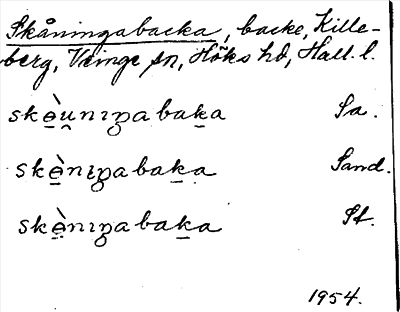 Skåningabacka, backe, Kille-
berg, Veinge sn, Höks hd, Hall. l.
skè̱u̯niŋabaḵa Sa.
skè̱niŋabaḵa Sand.
skè̱niŋabaḵa St.
1954.